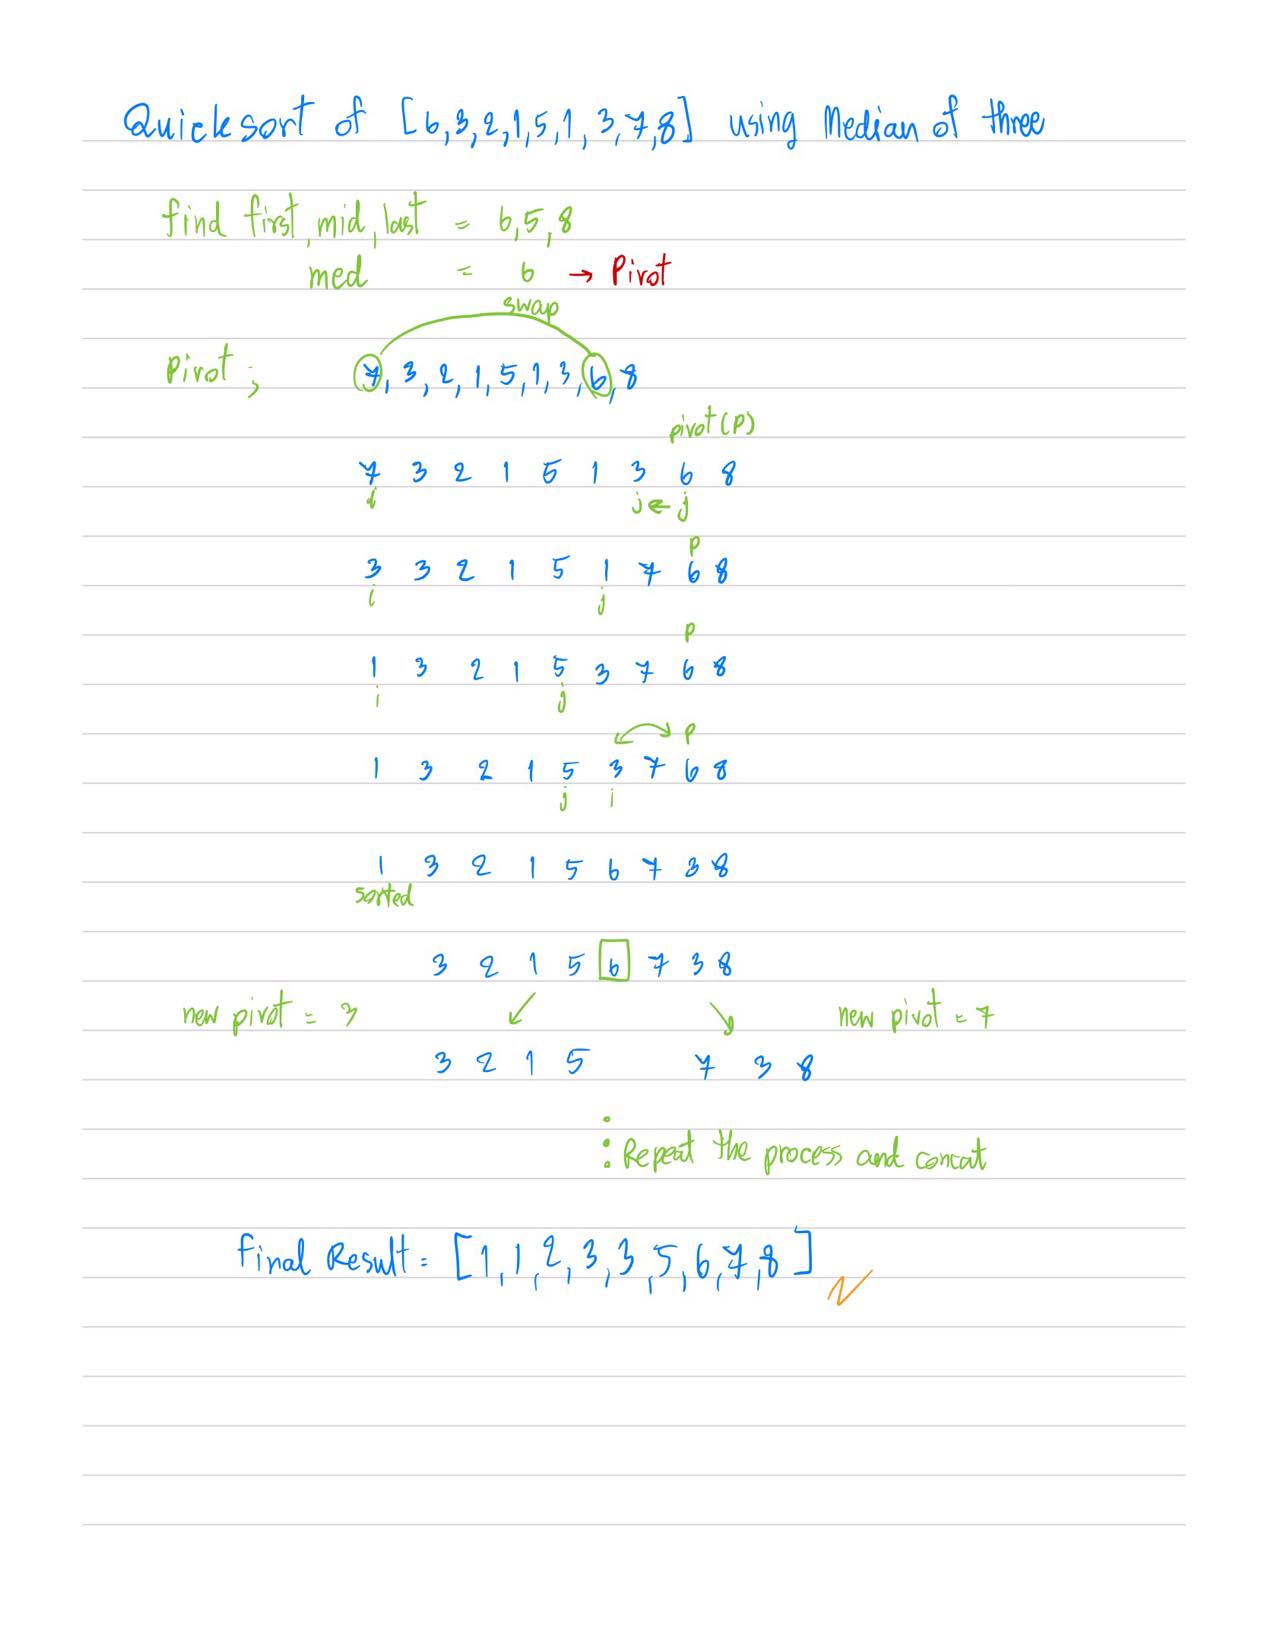 Quicksort of [6,3,2,1,5,1,3,7,8] using Median of three
find first, mid, last = 6,5,8
med = 6 → Pivot
swap
Pivot; 7, 3, 2, 1, 5, 1, 3, 6, 8
pivot(P)
7 3 2 1 5 1 3 6 8
i j ← j
P
3 3 2 1 5 1 7 6 8
i j
P
1 3 2 1 5 3 7 6 8
i j
P
1 3 2 1 5 3 7 6 8
j i
1 3 2 1 5 6 7 3 8
sorted
3 2 1 5 6 7 3 8
new pivot = 3 new pivot = 7
3 2 1 5 7 3 8
⋮ Repeat the process and concat
Final Result = [1,1,2,3,3,5,6,7,8]